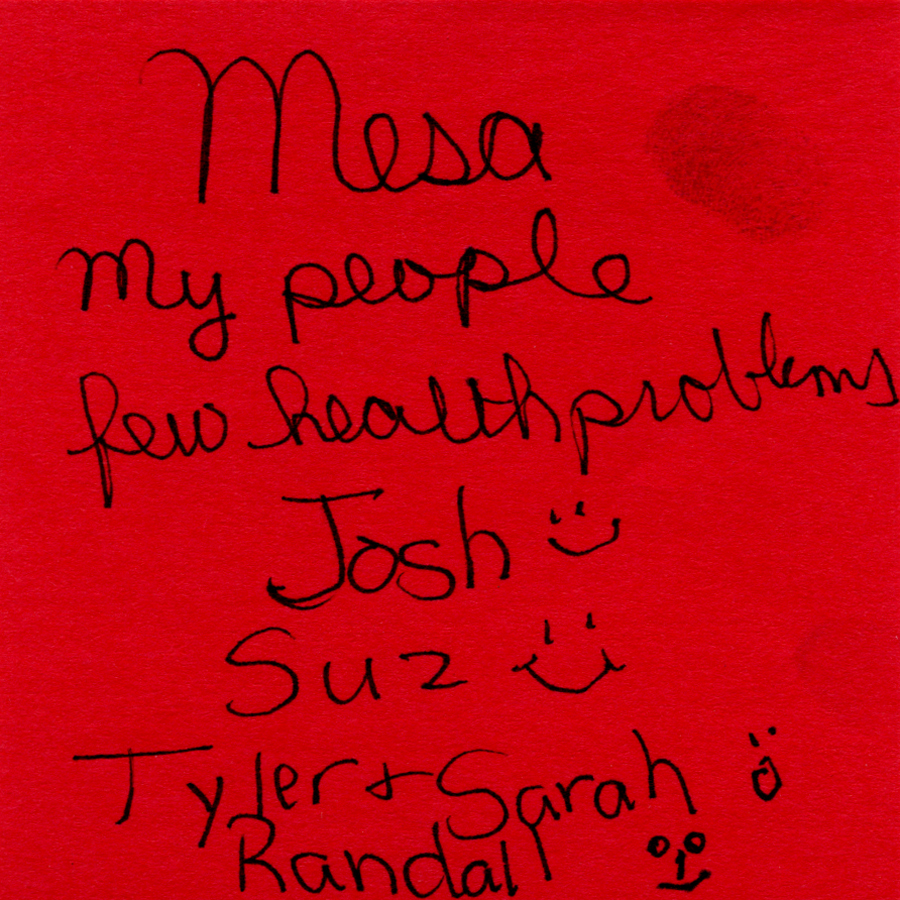 Mesa
My people
few health problems
Josh
Suz
Tyler + Sarah
Randall